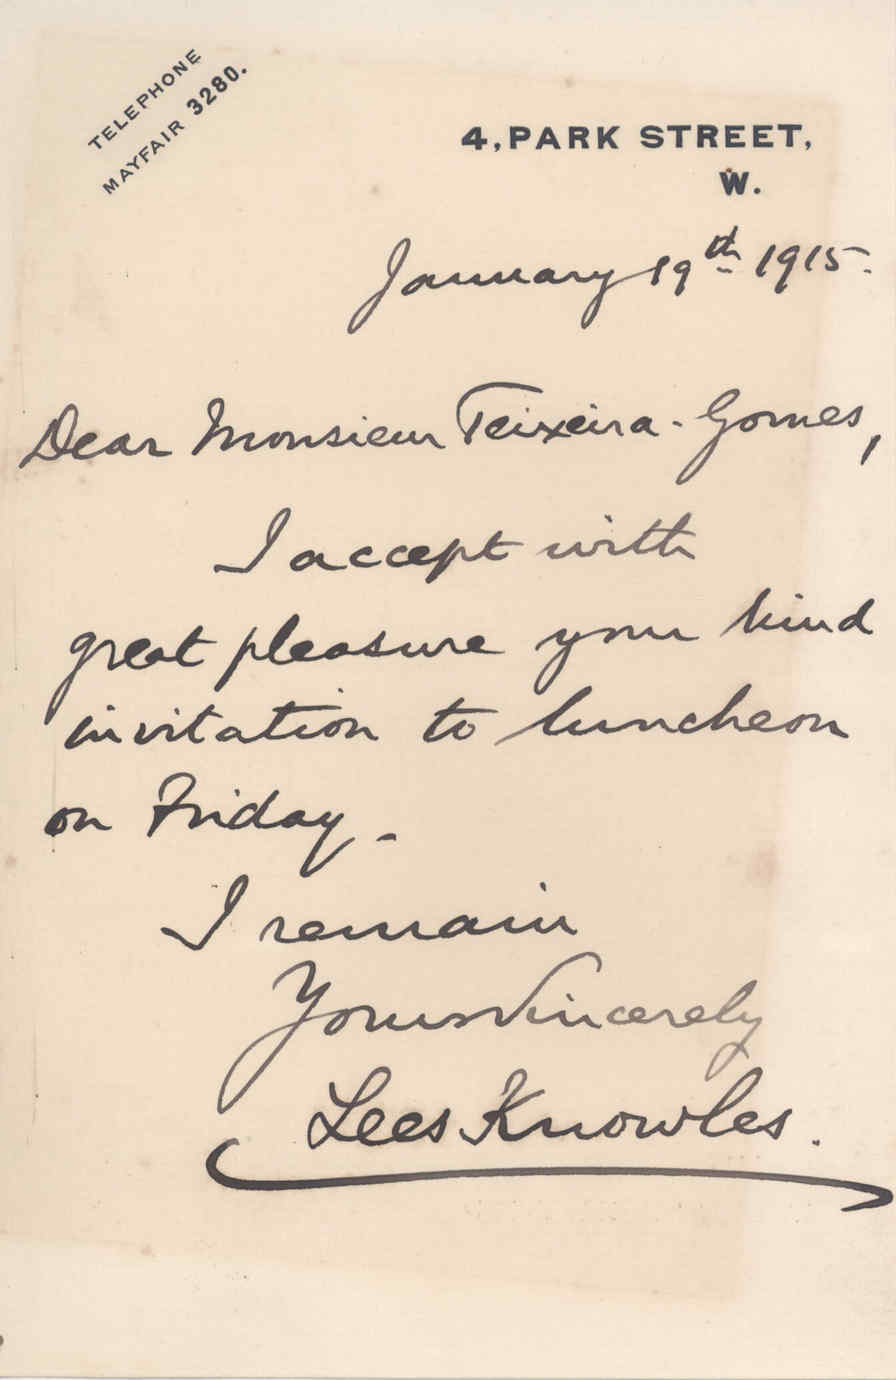 TELEPHONE
MAYFAIR 3280.
4, PARK STREET,
W.
January 19th 1915.
Dear Monsieur Teixeira-Gomes,
I accept with
great pleasure your kind
invitation to luncheon
on Friday.
I remain
Yours Sincerely
Lees Knowles.